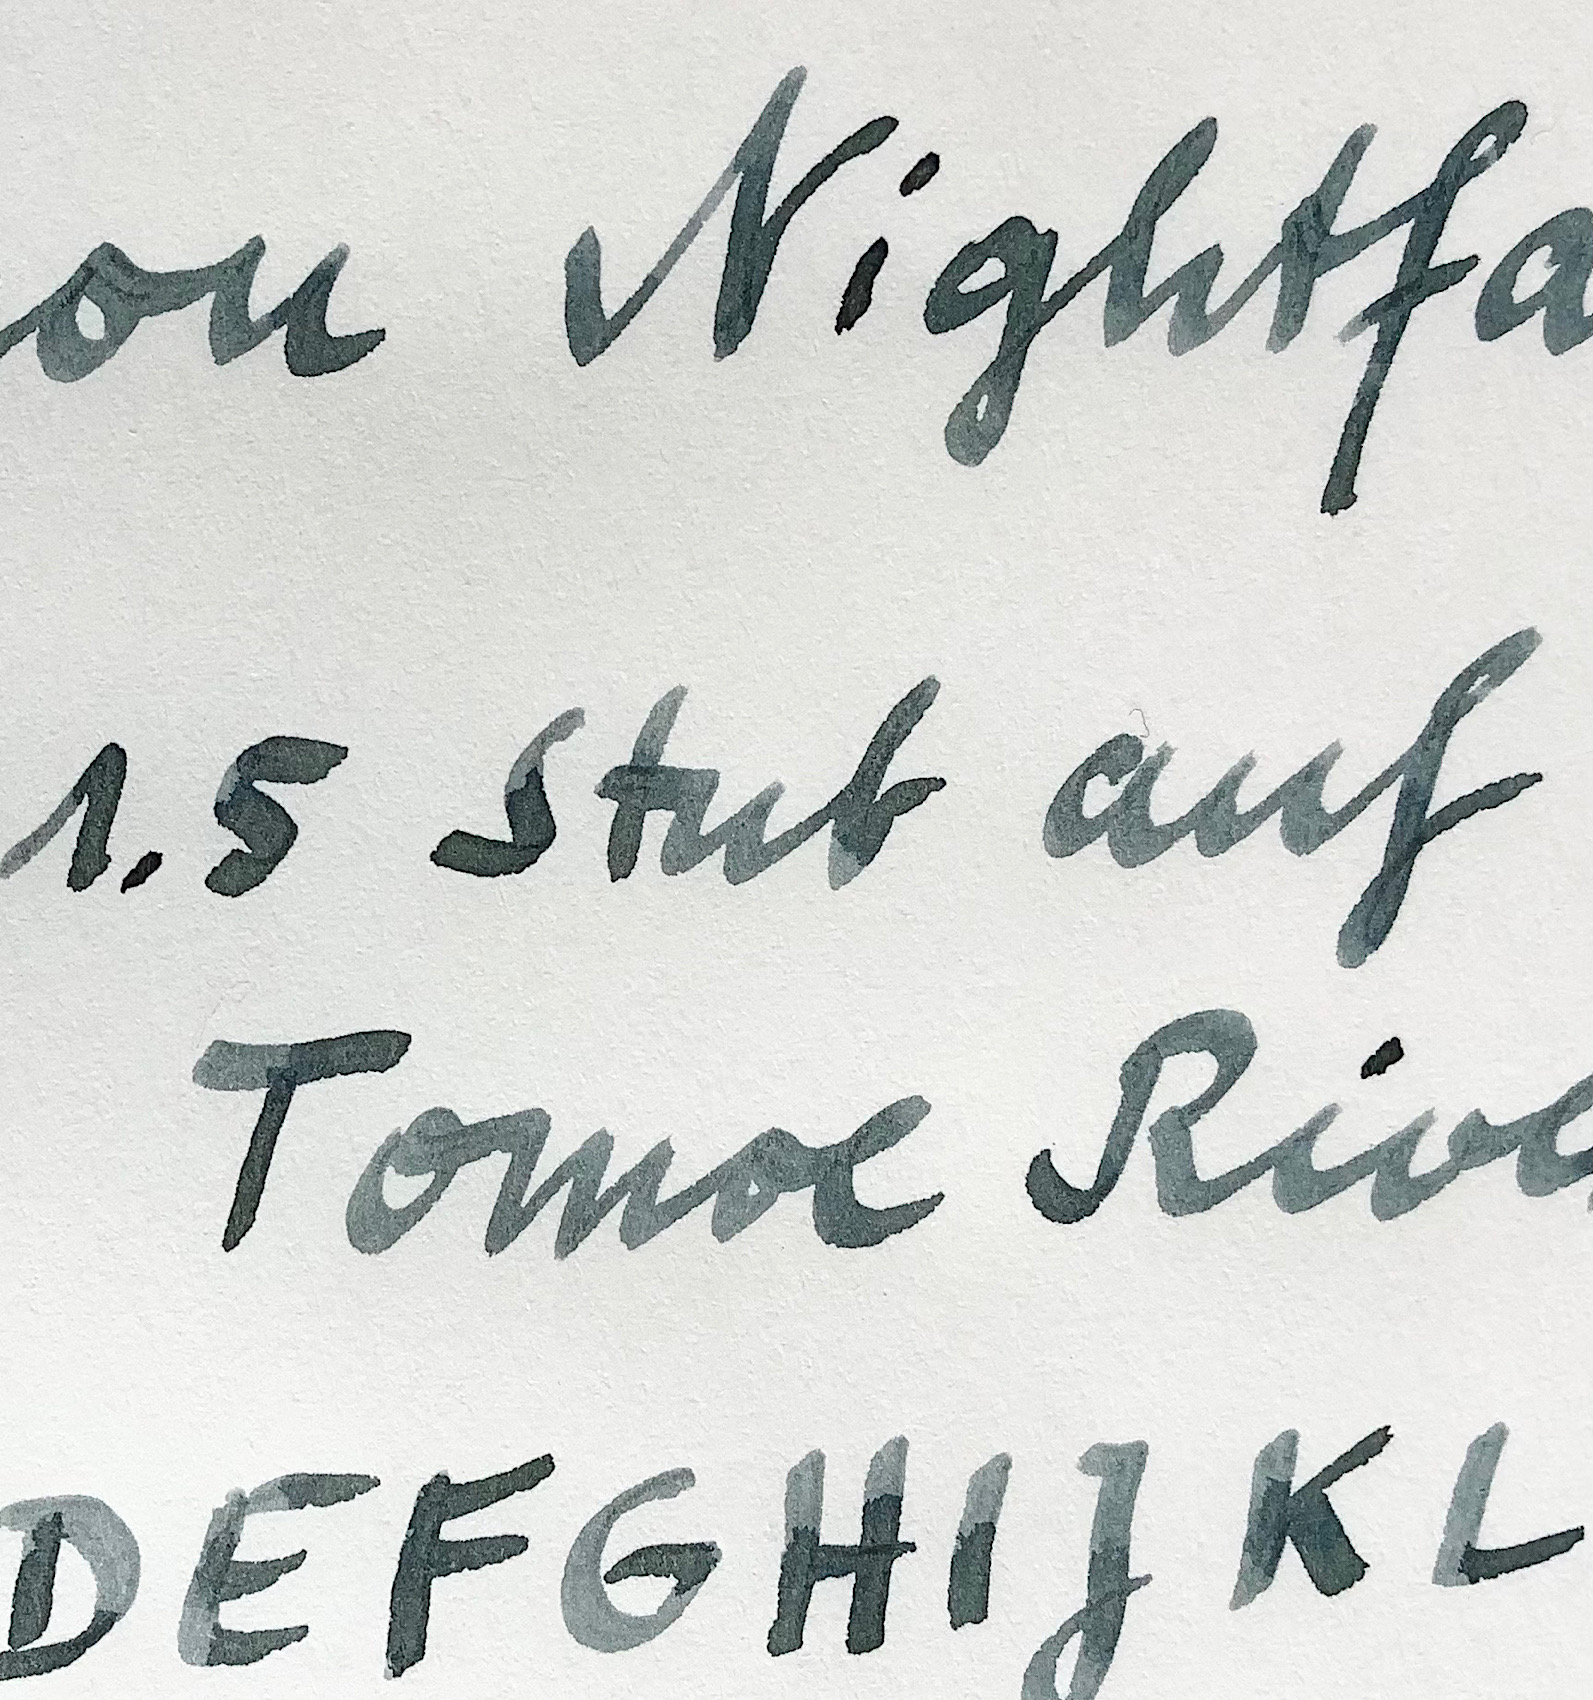 ou Nightfa
1.5 Stub auf
Tomoe Rive
DEFGHIJKL